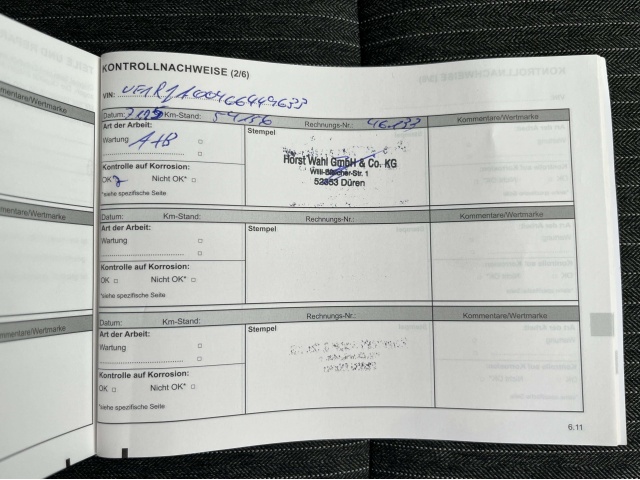 KONTROLLNACHWEISE (2/6)
VIN:
Datum: Km-Stand: Rechnungs-Nr.: 46.133 Kommentare/Wertmarke
Art der Arbeit:
Wartung A+B
Stempel
Horst Wahl GmbH & Co. KG
52353 Düren
Kontrolle auf Korrosion:
OK Nicht OK*
*siehe spezifische Seite
Datum: Km-Stand: Rechnungs-Nr.: Kommentare/Wertmarke
Art der Arbeit:
Wartung
Stempel
Kontrolle auf Korrosion:
OK Nicht OK*
*siehe spezifische Seite
Datum: Km-Stand: Rechnungs-Nr.: Kommentare/Wertmarke
Art der Arbeit:
Wartung
Stempel
Kontrolle auf Korrosion:
OK Nicht OK*
*siehe spezifische Seite
6.11
mentare/Wertmarke